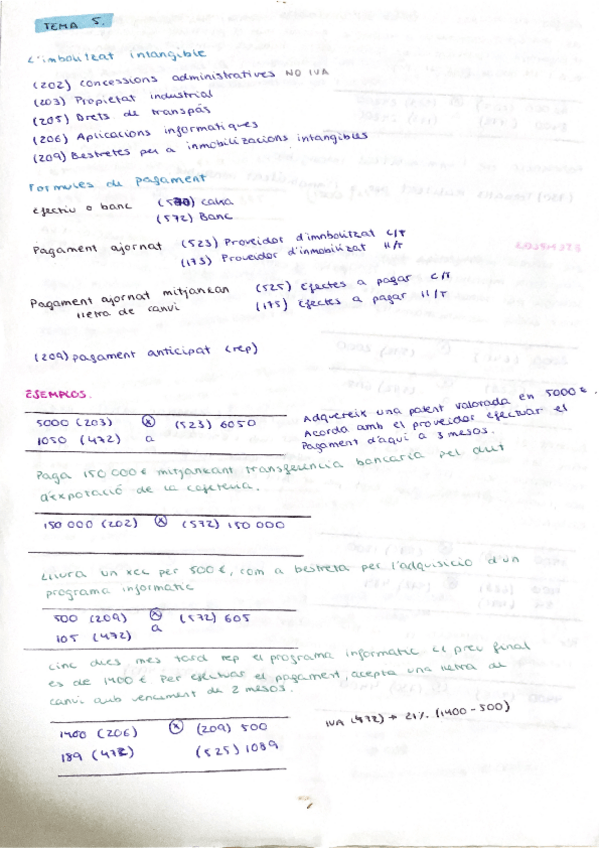 TEMA 5.
L'imbolitzat intangible
(202) Concessions administratives NO IVA
(203) Propietat industrial
(205) Drets de transpàs
(206) Aplicacions informatiques
(209) Bestretes per a inmobilizacions intangibles
Formules de pagament
efectiu o banc (570) Caixa
(572) Banc
Pagament ajornat (523) Proveidor d'imnbolitzat C/T
(173) Proveidor d'inmobilizat ll/T
Pagament ajornat mitjankan (525) Efectes a pagar C/T
lletra de canvi (175) Efectes a pagar ll/T
(209) pagament anticipat (rep)
ESEMPLOS.
5000 (203) (523) 6050
1050 (472) a
Adquereix una patent valorada en 5000 €.
Acorda amb el proveidor efectuar el
Pagament d'aqui a 3 mesos.
Paga 150 000 € mitjankant transferència bancaria pel dret
d'expotació de la cafeteria.
150 000 (202) (572) 150 000
Lliura un xec per 500 €, com a bestreta per l'adquisició d'un
programa informatic
500 (209) (572) 605
105 (472) a
Cinc dies mes tard rep el programa informatic el preu final
es de 1400 € Per efectuar el pagament, acepta una lletra de
canvi amb venciment de 2 mesos.
1400 (206) (209) 500
189 (472) (525) 1089
IVA (472) → 21% (1400 - 500)